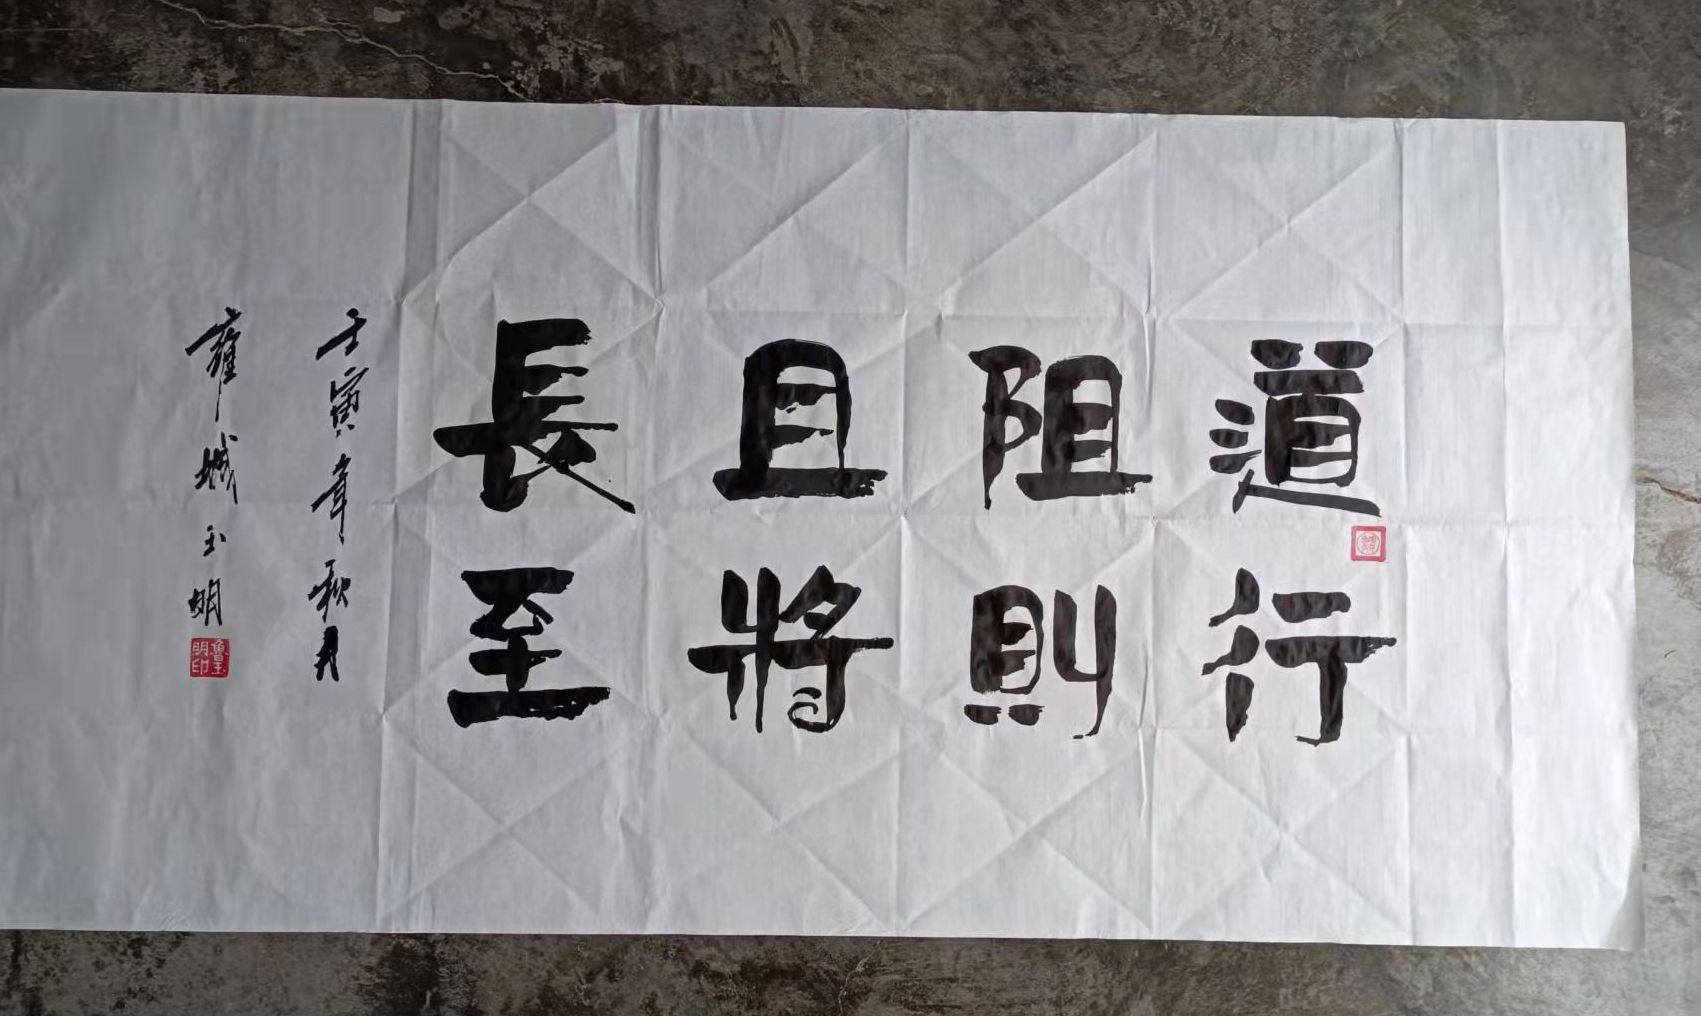 道阻且長
行則將至
壬寅年秋月
雍城玉明
魯玉明印